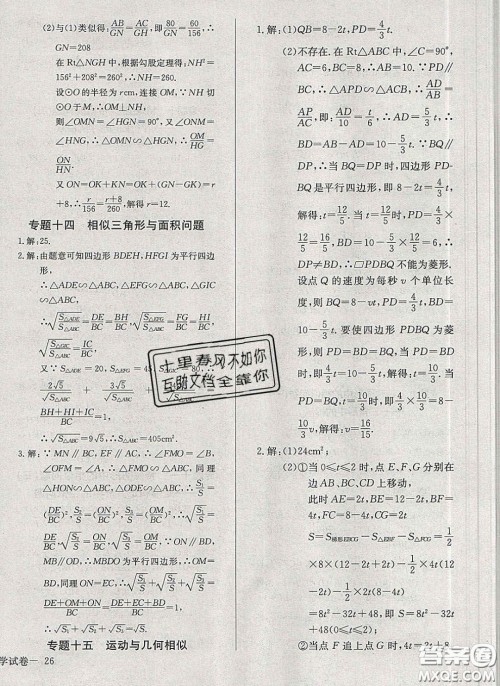 (2)与(1)类似得：AB/GN=AC/GH，即80/GN=60/156，
∴GN=208
在 Rt△NGH 中，根据勾股定理得：NH²=
156²+208²=260²，∴NH=260.
设⊙O 的半径为 rcm，连接 OM，∵NH
切⊙O 于 M，∴OM⊥NH，
则∠OMN=∠HGN=90°，又∠ONM=
∠HNG，∴△OMN∽△HGN，∴OM/HG=
ON/HN.
又 ON=OK+KN=OK+(GN-GK)=r+8，
∴r/156=(r+8)/260，解得：r=12.
专题十四 相似三角形与面积问题
1.解：25.
2.解：由题意可知四边形 BDEH，HFGI 为平行四边
形，
∴△ADE∽△ABC，△EFG∽△ABC，△GIC
∽△ABC，
∴√(S△ADE/S△ABC)=DE/BC，√(S△EFG/S△ABC)=FG/BC=HI/BC，
√(S△GIC/S△ABC)=IC/BC，
∴S△ABC=9√5，∴S△ABC=405cm².
3.解：∵MN∥BC，EF∥AC，∴∠OMF=∠B，
∠OFM=∠A，∴△EBF∽△ABC，同理
△HON∽△ABC，△ODE∽△ABC，∴S₁/S=
(DE/BC)²，
∵四边形 BEOM，四边形 CDON 为平行四边
形，
∵MB∥OD，MD∥OB，∴四边形 OMBD 为
平行四边形，∴OM=
BD，同理 ON=EC，
(DE+OM+ON)/BC=(DE+BD+EC)/BC=1，
∴√S=√S₁+√S₂+√S₃.
专题十五 运动与几何相似
学试卷— 26
1.解：(1)QB=8-2t，PD=4/3 t.
(2)不存在.在 Rt△ABC 中，∠C=90°，
AC=6，BC=8，∴AB=10.∵PD∥BC，
∴△APD∽△ACB，∴AD/AB=
AP/AC，即：AD/10=t/6，∴AD=5/3 t，
∴BD=AB-AD=10-5/3 t.∵BQ∥
DP，∴当 BQ=DP 时，四边形
PDBQ 是平行四边形，即 8-2t=4/3 t，
解得：t=12/5.当 t=12/5 时，PD=4/3×12/5
=16/5，BD=10-5/3×12/5=6，∴DP≠
BD，∴▱PDBQ 不能为菱形.
设点 Q 的速度为每秒 v 个单位长
度，则 BQ=8-vt，PD=4/3 t，BD=
10-5/3 t.要使四边形 PDBQ 为菱
形，则 PD=BD=BQ，当 PD=BD
时，即 4/3 t=10-5/3 t，解得：t=10/3.当
PD=BQ，t=10/3 时，即 4/3×10/3=8-
10/3 v，解得：v=16/15.
2.解：(1)24cm²；
(2)①当 0≤t≤2 时，点 E、F、G 分别在
边 AB、BC、CD 上移动，
此时 AE=2t，BE=12-2t，BF=
4t，FC=8-4t，CG=2t
S=S梯形EBCG-S△EBF-S△FCG=1/2
×8(12-2t+2t)-1/2×4t(12-
2t)-1/2×2t(8-4t)=8t²-32t
+48，即 S=8t²-32t+48
(0≤t≤2)；
②当点 F 追上点 G 时，4t=2t+
十里春风不如你
互助文档全靠你
答案圈
MXQE.COM